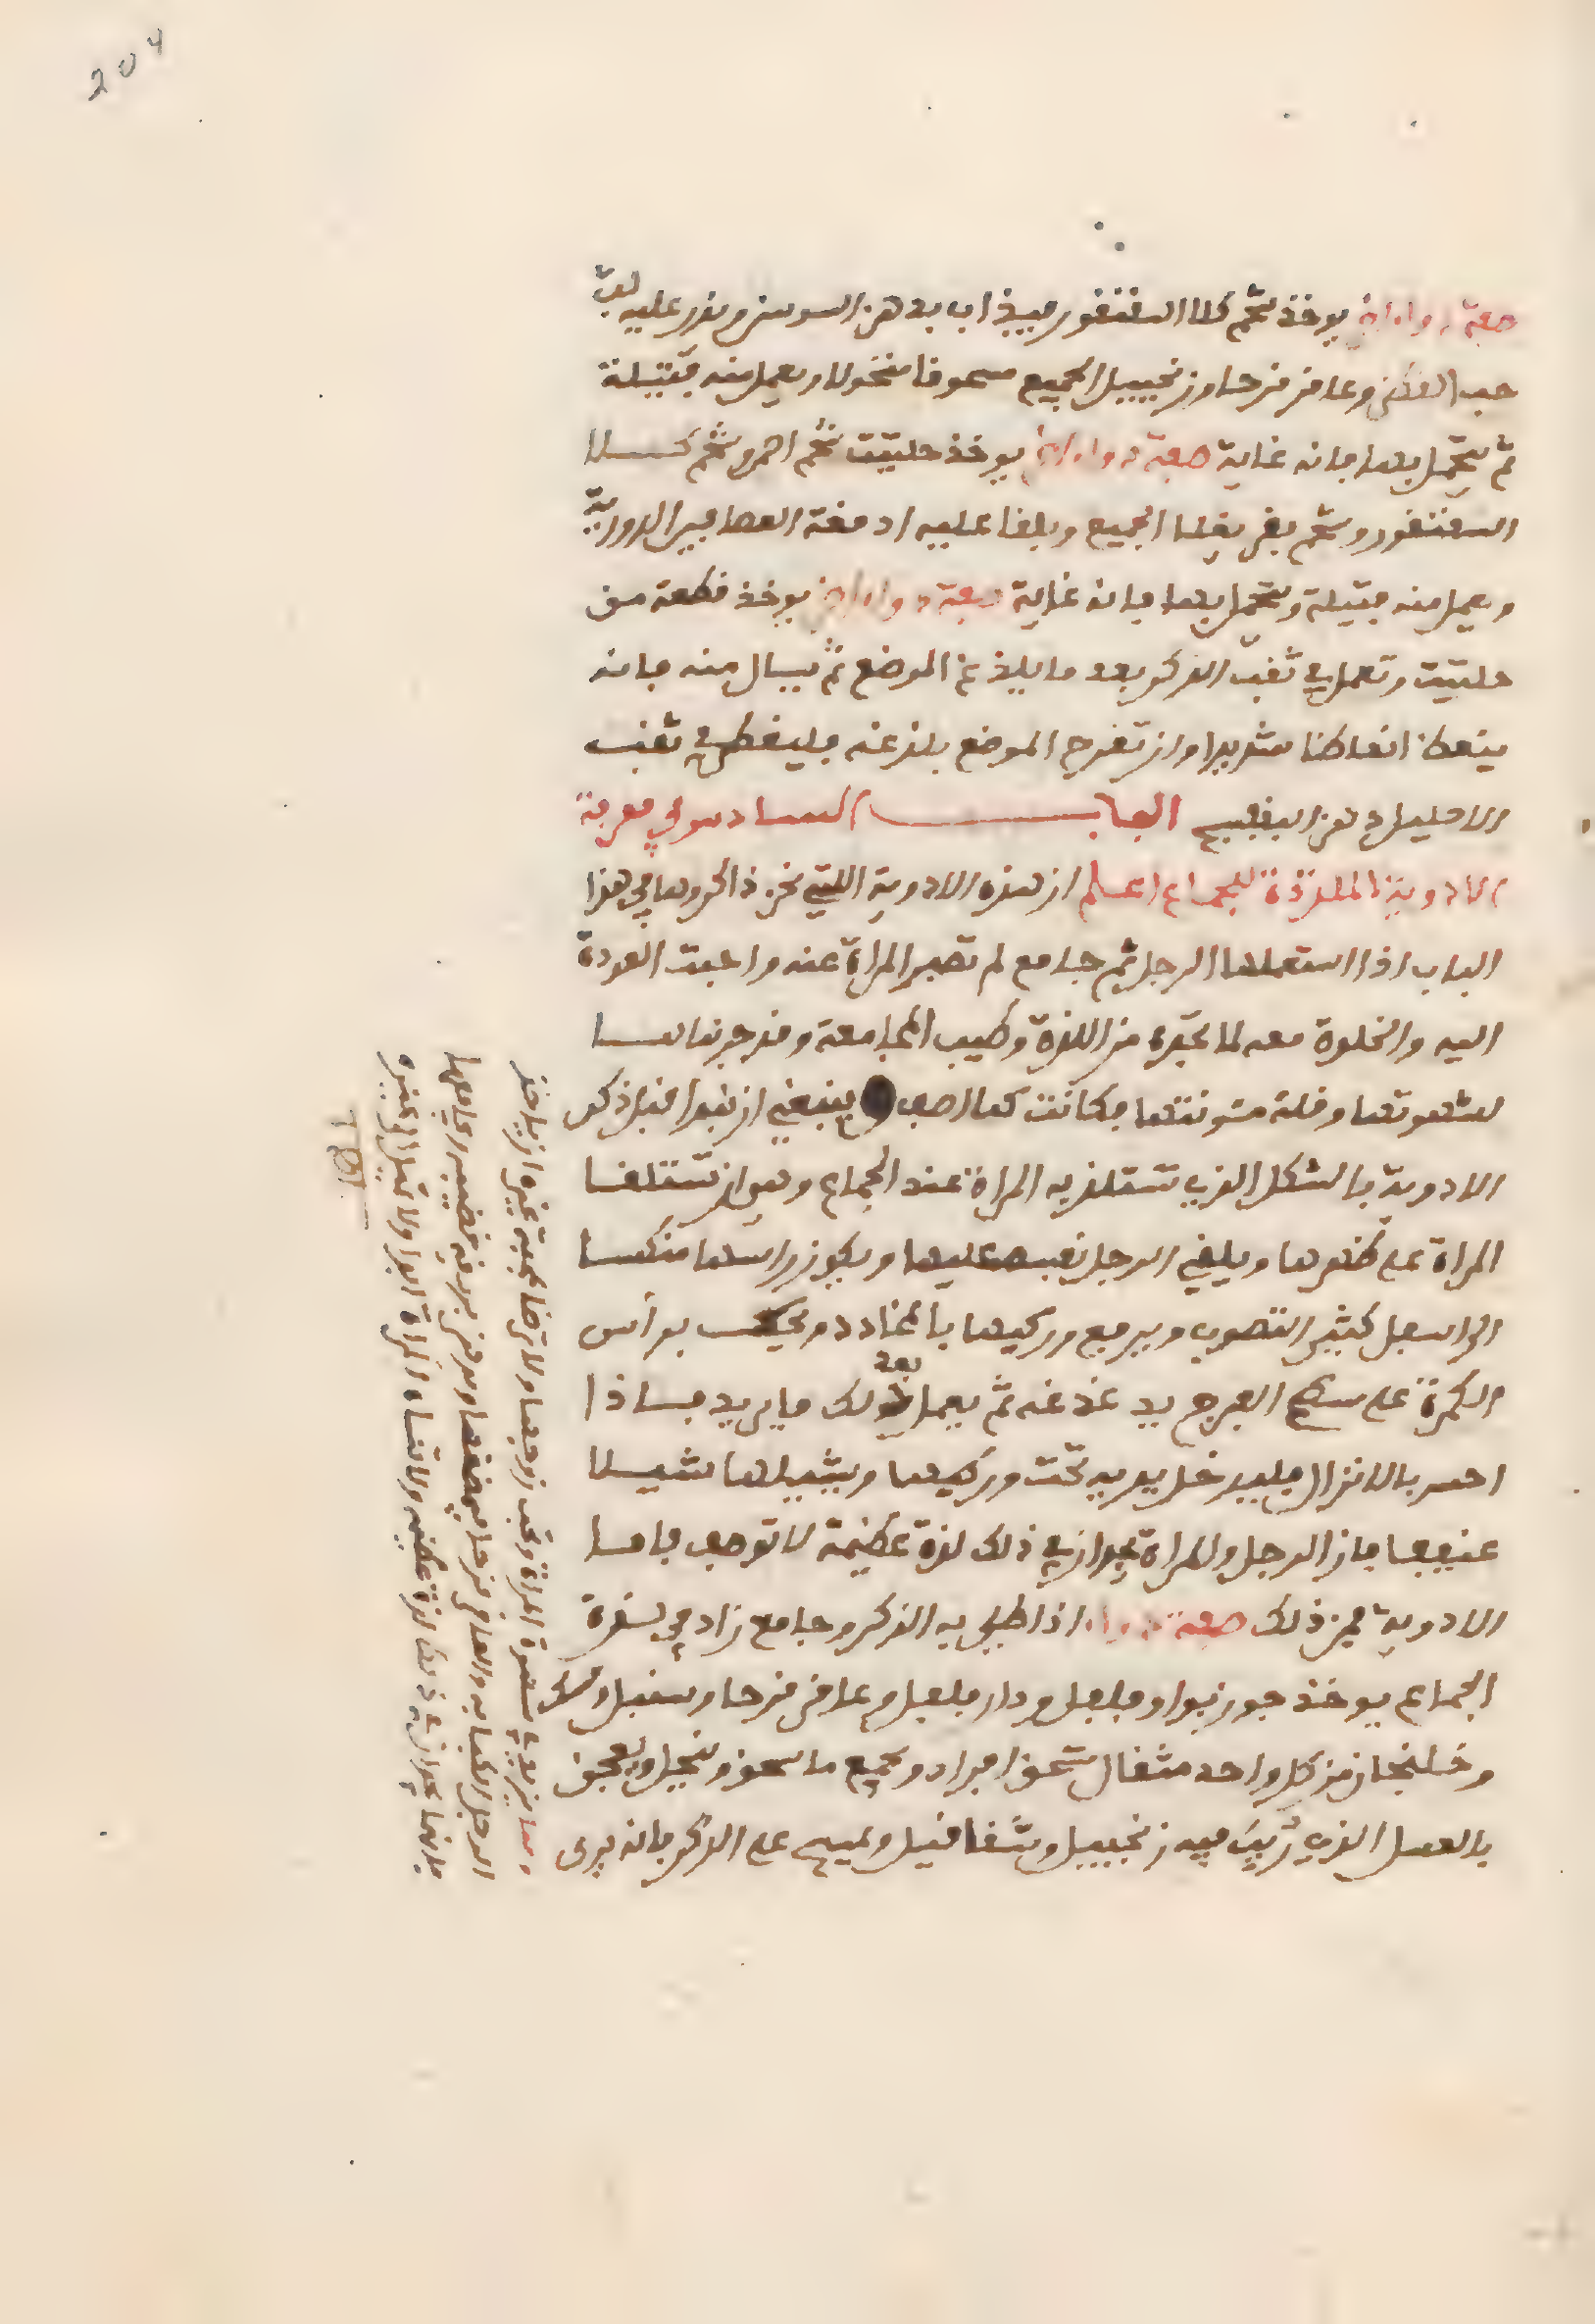 204
صفة دواء اخر يوخذ شحم كلا السقنقور فيذاب بدهن السوسن ويذر عليه لب
حب القطن وعاقر قرحا وزنجبيل الجميع مسحوقا منخولا ويعمل منه فتيلة
ثم يتحمل بها فانه غاية صفة دواء اخر يوخذ حلتيت شحم احمر وشحم كلا
السقنقور وشحم بقر يغلا الجميع ويلقا عليه ادمغة العصافير الدورية
ويعمل منه فتيلة ويتحمل بها فانه غاية صفة دواء اخر يوخذ قطعة من
حلتيت وتعمل في ثقب الذكر بعد ما يلذغ الموضع ثم يبال منه فانه
ينعظ انعاظا شديدا وان تقرح الموضع بلذعه فليقطر في ثقب
الاحليل دهن البنفسج الباب السادس في معرفة
الادوية الملذذة للجماع اعلم ان هذه الادوية التي نحن ذاكروها في هذا
الباب اذا استعملها الرجل ثم جامع لم تصبر المراة عنه واحبت العودة
اليه والخلوة معه لما تجده من اللذة وطيب المجامعة
لشهوتها وقلة مئونتها فكانت ينبغي ان نبدا قبل ذكر
الادوية بالشكل الذي تستلذ به المراة عند الجماع وهو ان تستلقا
المراة على ظهرها ويلقي الرجل نفسه عليها ويكون راسها منكسا
الى اسفل كثير التصوب ويرفع وركيها بالمخادد ويحك براس
الكمرة على سطح الفرج يدغدغه ثم يعمل بعد ذلك ما يريد فاذا
احس بالانزال فليدخل يديه تحت وركيها ويشيلها شيلا
عنيفا فان الرجل والمراة يجدان في ذلك لذة عظيمة لا توصف فاما
الادوية فمن ذلك صفة دواء اذا طلي به الذكر وجامع زاد في لذة
الجماع يوخذ جوز بوا وفلفل ودار فلفل وعاقر قرحا وسنبل ومسك
وخلنجان من كل واحد مثقال تسحق افراد ويجمع ما سحق وينخل ويعجن
بالعسل الذي ربب فيه زنجبيل وشقاقيل ويمسح على الذكر فانه يرى
ومما يزيد في شهوة المراة وتحب زوجها ولا ترضا بمحبة غيره ان ياخذ
الرجل الكبابه والعاقر قرحا فيمضغها ويدهن بريقه قضيبه ويجامعها
فانهما يجدان في ذلك لذة عظيمة ولا تنساه المراة ابدا ولا تميل الى غيره